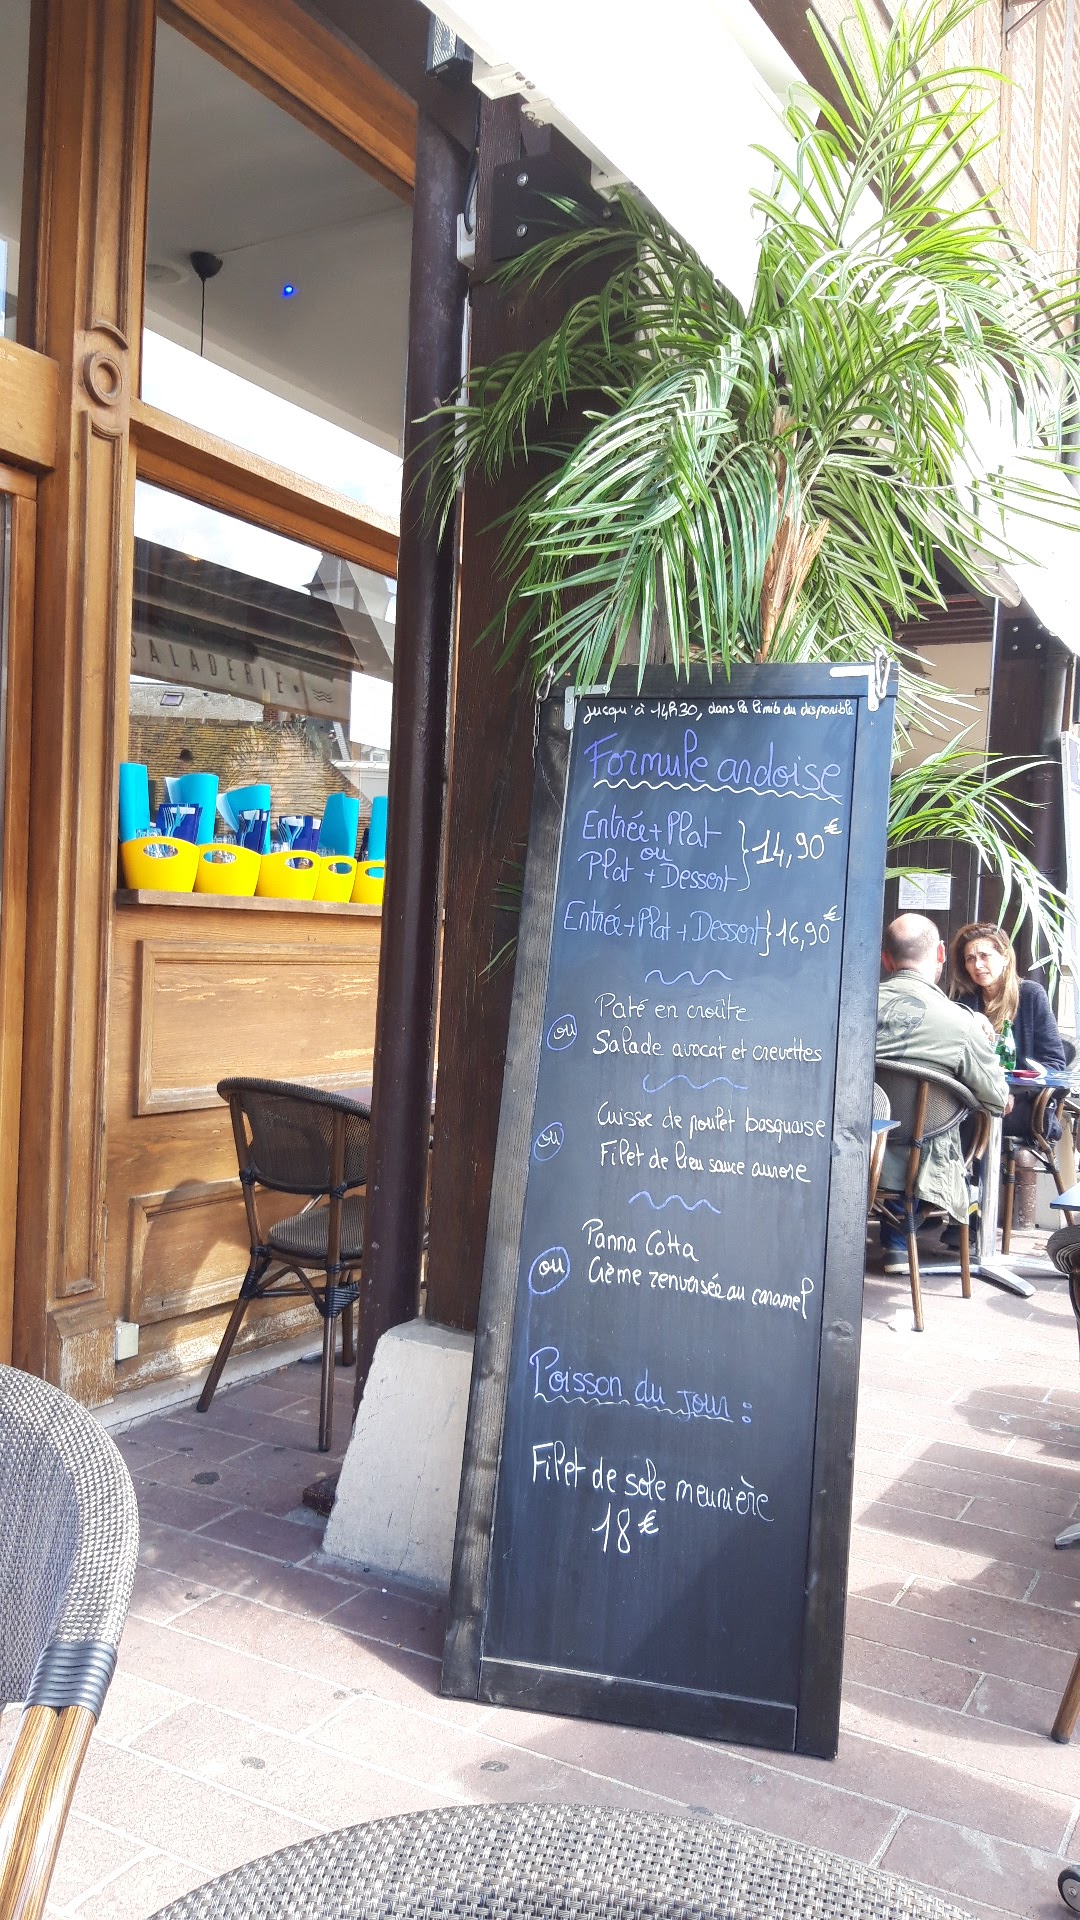 SALADERIE
jusqu'à 14h30, dans la limite du disponible
Formule andoise
Entrée + Plat
ou
Plat + Dessert } 14,90€
Entrée + Plat + Dessert } 16,90€
Paté en croûte
ou
Salade avocat et crevettes
Cuisse de poulet basquaise
ou
Filet de lieu sauce aurore
Panna Cotta
ou
Crème renversée au caramel
Poisson du Jour :
Filet de sole meunière
18€